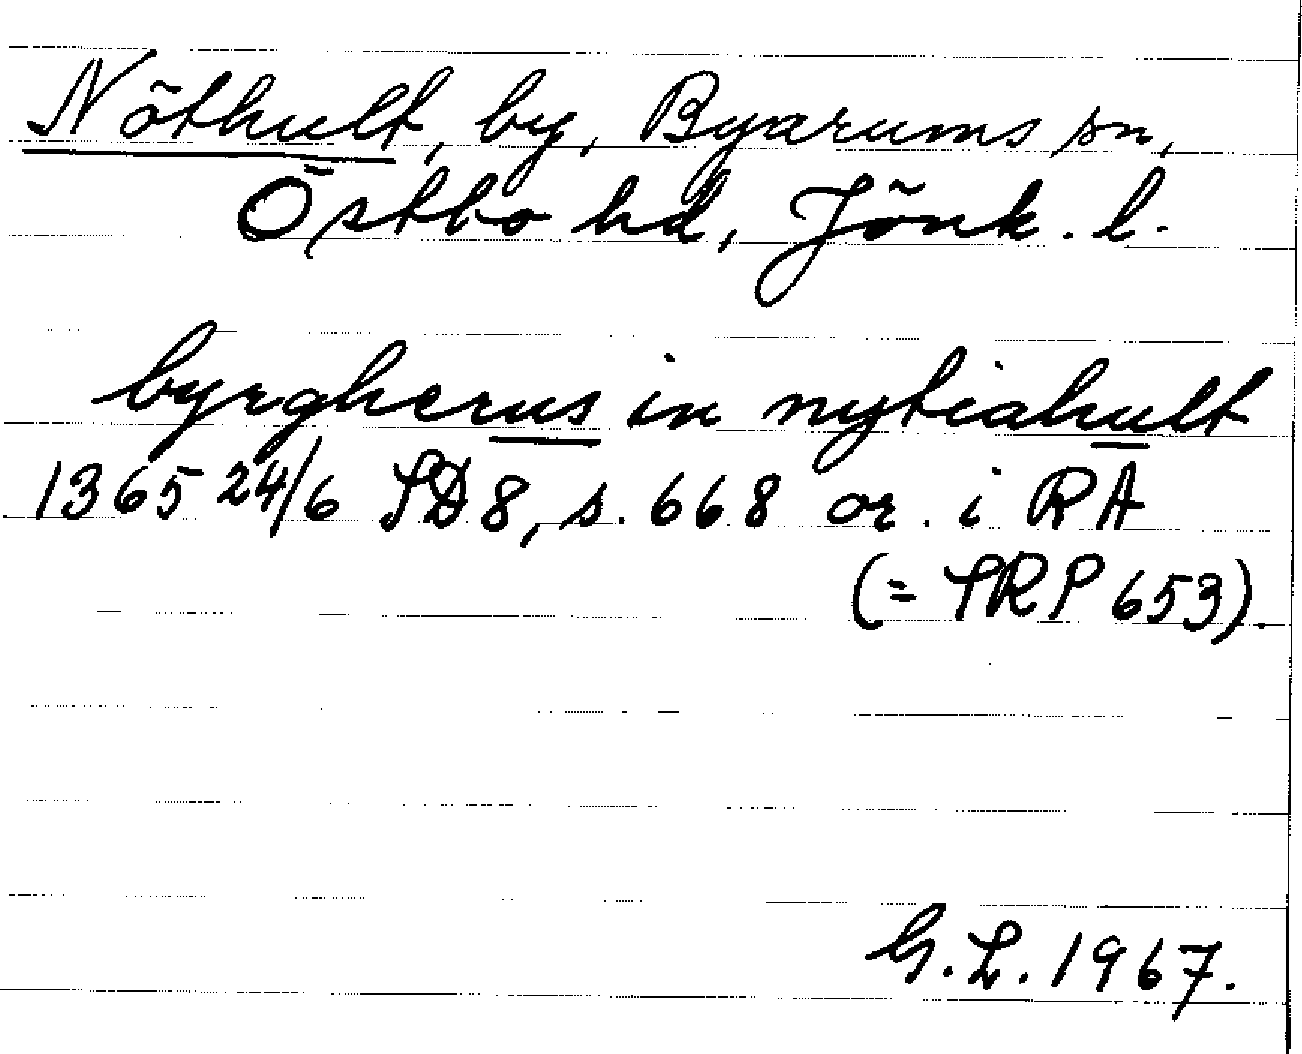 Nöthult, by, Byarums sn,
Östbo hd, Jönk. l.
byrgherus in nytiahult
1365 24/6 SD8, s. 668 or. i RA
(= SRP 653).
G. L. 1967.